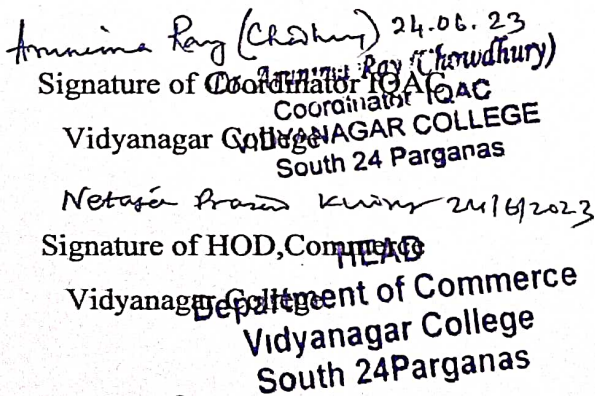 Arunima Ray (Chowdhury) 24.06.23
Signature of Coordinator IQAC
Dr. Arunima Ray (Chowdhury)
Coordinator IQAC
Vidyanagar College
VIDYANAGAR COLLEGE
South 24 Parganas
Netaji Prasad 24/6/2023
Signature of HOD,Commerce
HEAD
Vidyanagar College
Department of Commerce
Vidyanagar College
South 24Parganas